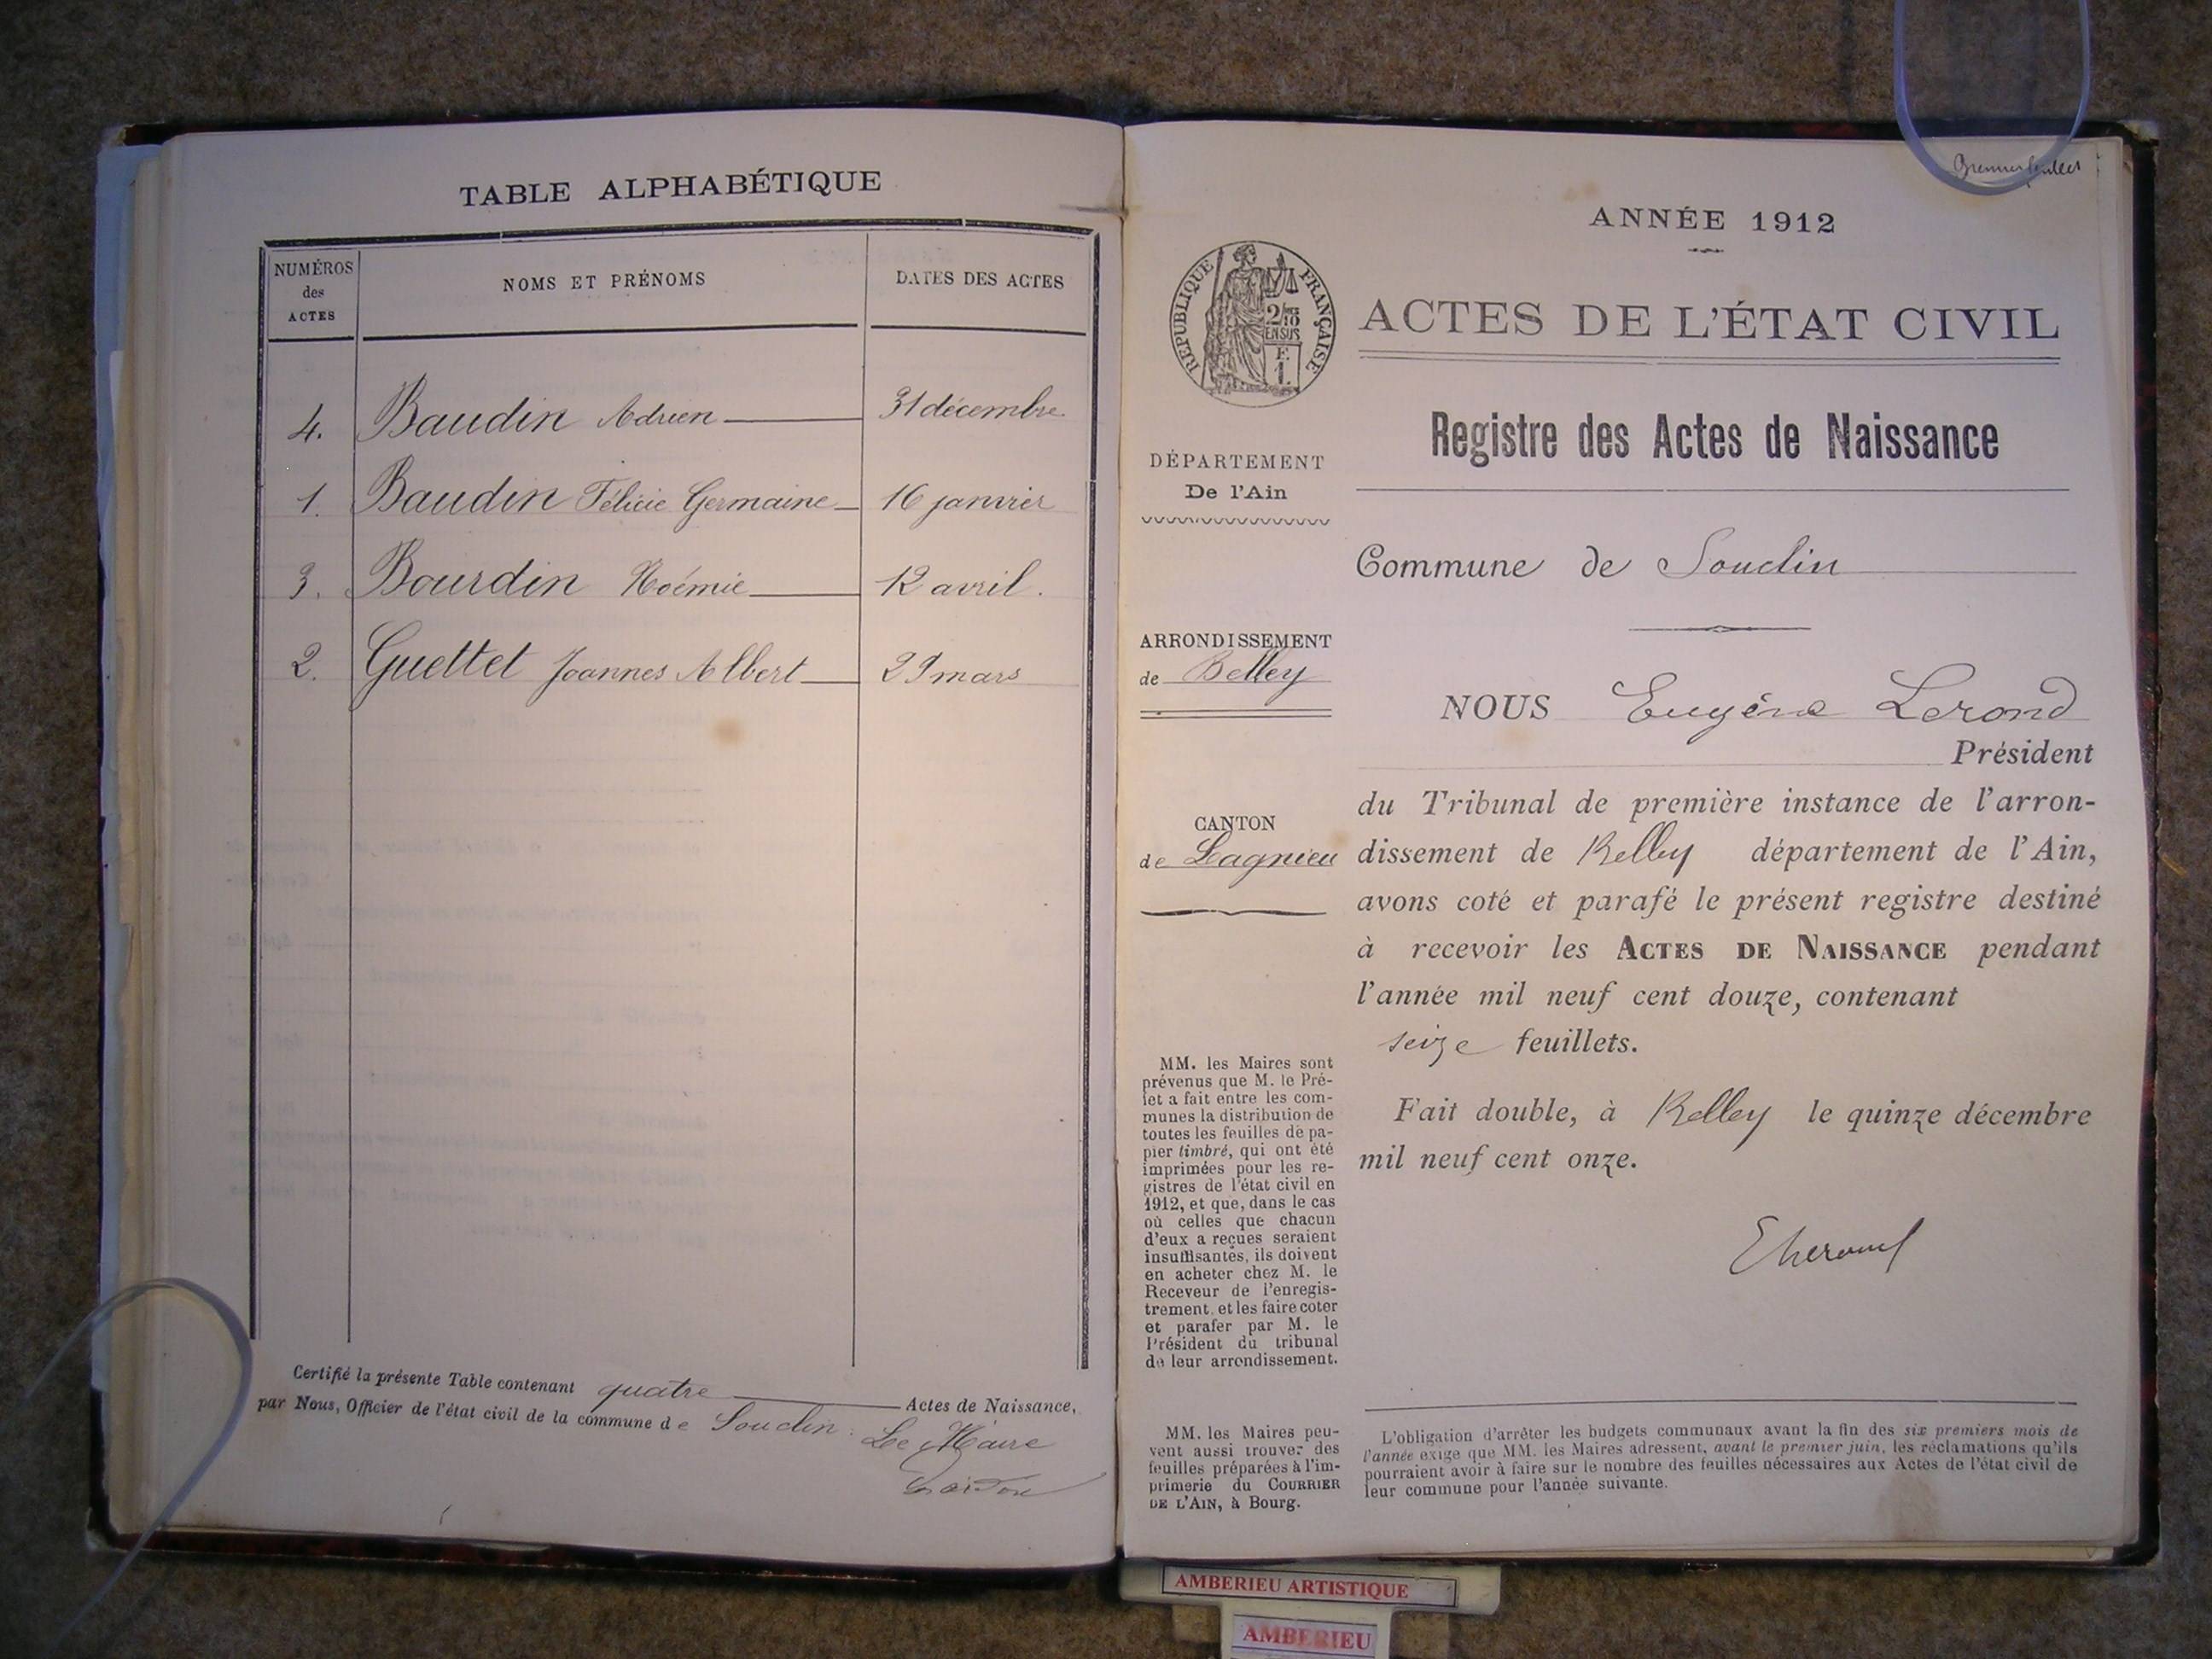 TABLE ALPHABÉTIQUE
NUMÉROS
des
ACTES
NOMS ET PRÉNOMS
DATES DES ACTES
4. Baudin Adrien 31 décembre
1. Baudin Félicie Germaine 16 janvier
3. Bourdin Noémie 12 avril.
2. Guettet Joannes Albert 29 mars
Certifié la présente Table contenant quatre Actes de Naissance,
par Nous, Officier de l'état civil de la commune de Souclin.
Le Maire
Premier feuillet
ANNÉE 1912
RÉPUBLIQUE FRANÇAISE
2/10
EN SUS
F.
1.
ACTES DE L'ÉTAT CIVIL
Registre des Actes de Naissance
DÉPARTEMENT
De l'Ain
Commune de Souclin
ARRONDISSEMENT
de Belley
CANTON
de Lagnieu
NOUS Eugène Lerond
Président
du Tribunal de première instance de l'arron-
dissement de Belley département de l'Ain,
avons coté et parafé le présent registre destiné
à recevoir les ACTES DE NAISSANCE pendant
l'année mil neuf cent douze, contenant
seize feuillets.
Fait double, à Belley le quinze décembre
mil neuf cent onze.
MM. les Maires sont
prévenus que M. le Pré-
fet a fait entre les com-
munes la distribution de
toutes les feuilles de pa-
pier timbré, qui ont été
imprimées pour les re-
gistres de l'état civil en
1912, et que, dans le cas
où celles que chacun
d'eux a reçues seraient
insuffisantes, ils doivent
en acheter chez M. le
Receveur de l'enregis-
trement, et les faire coter
et parafer par M. le
Président du tribunal
de leur arrondissement.
MM. les Maires peu-
vent aussi trouver des
feuilles préparées à l'im-
primerie du COURRIER
DE L'AIN, à Bourg.
L'obligation d'arrêter les budgets communaux avant la fin des six premiers mois de
l'année exige que MM. les Maires adressent, avant le premier juin, les réclamations qu'ils
pourraient avoir à faire sur le nombre des feuilles nécessaires aux Actes de l'état civil de
leur commune pour l'année suivante.
AMBERIEU ARTISTIQUE
AMBERIEU